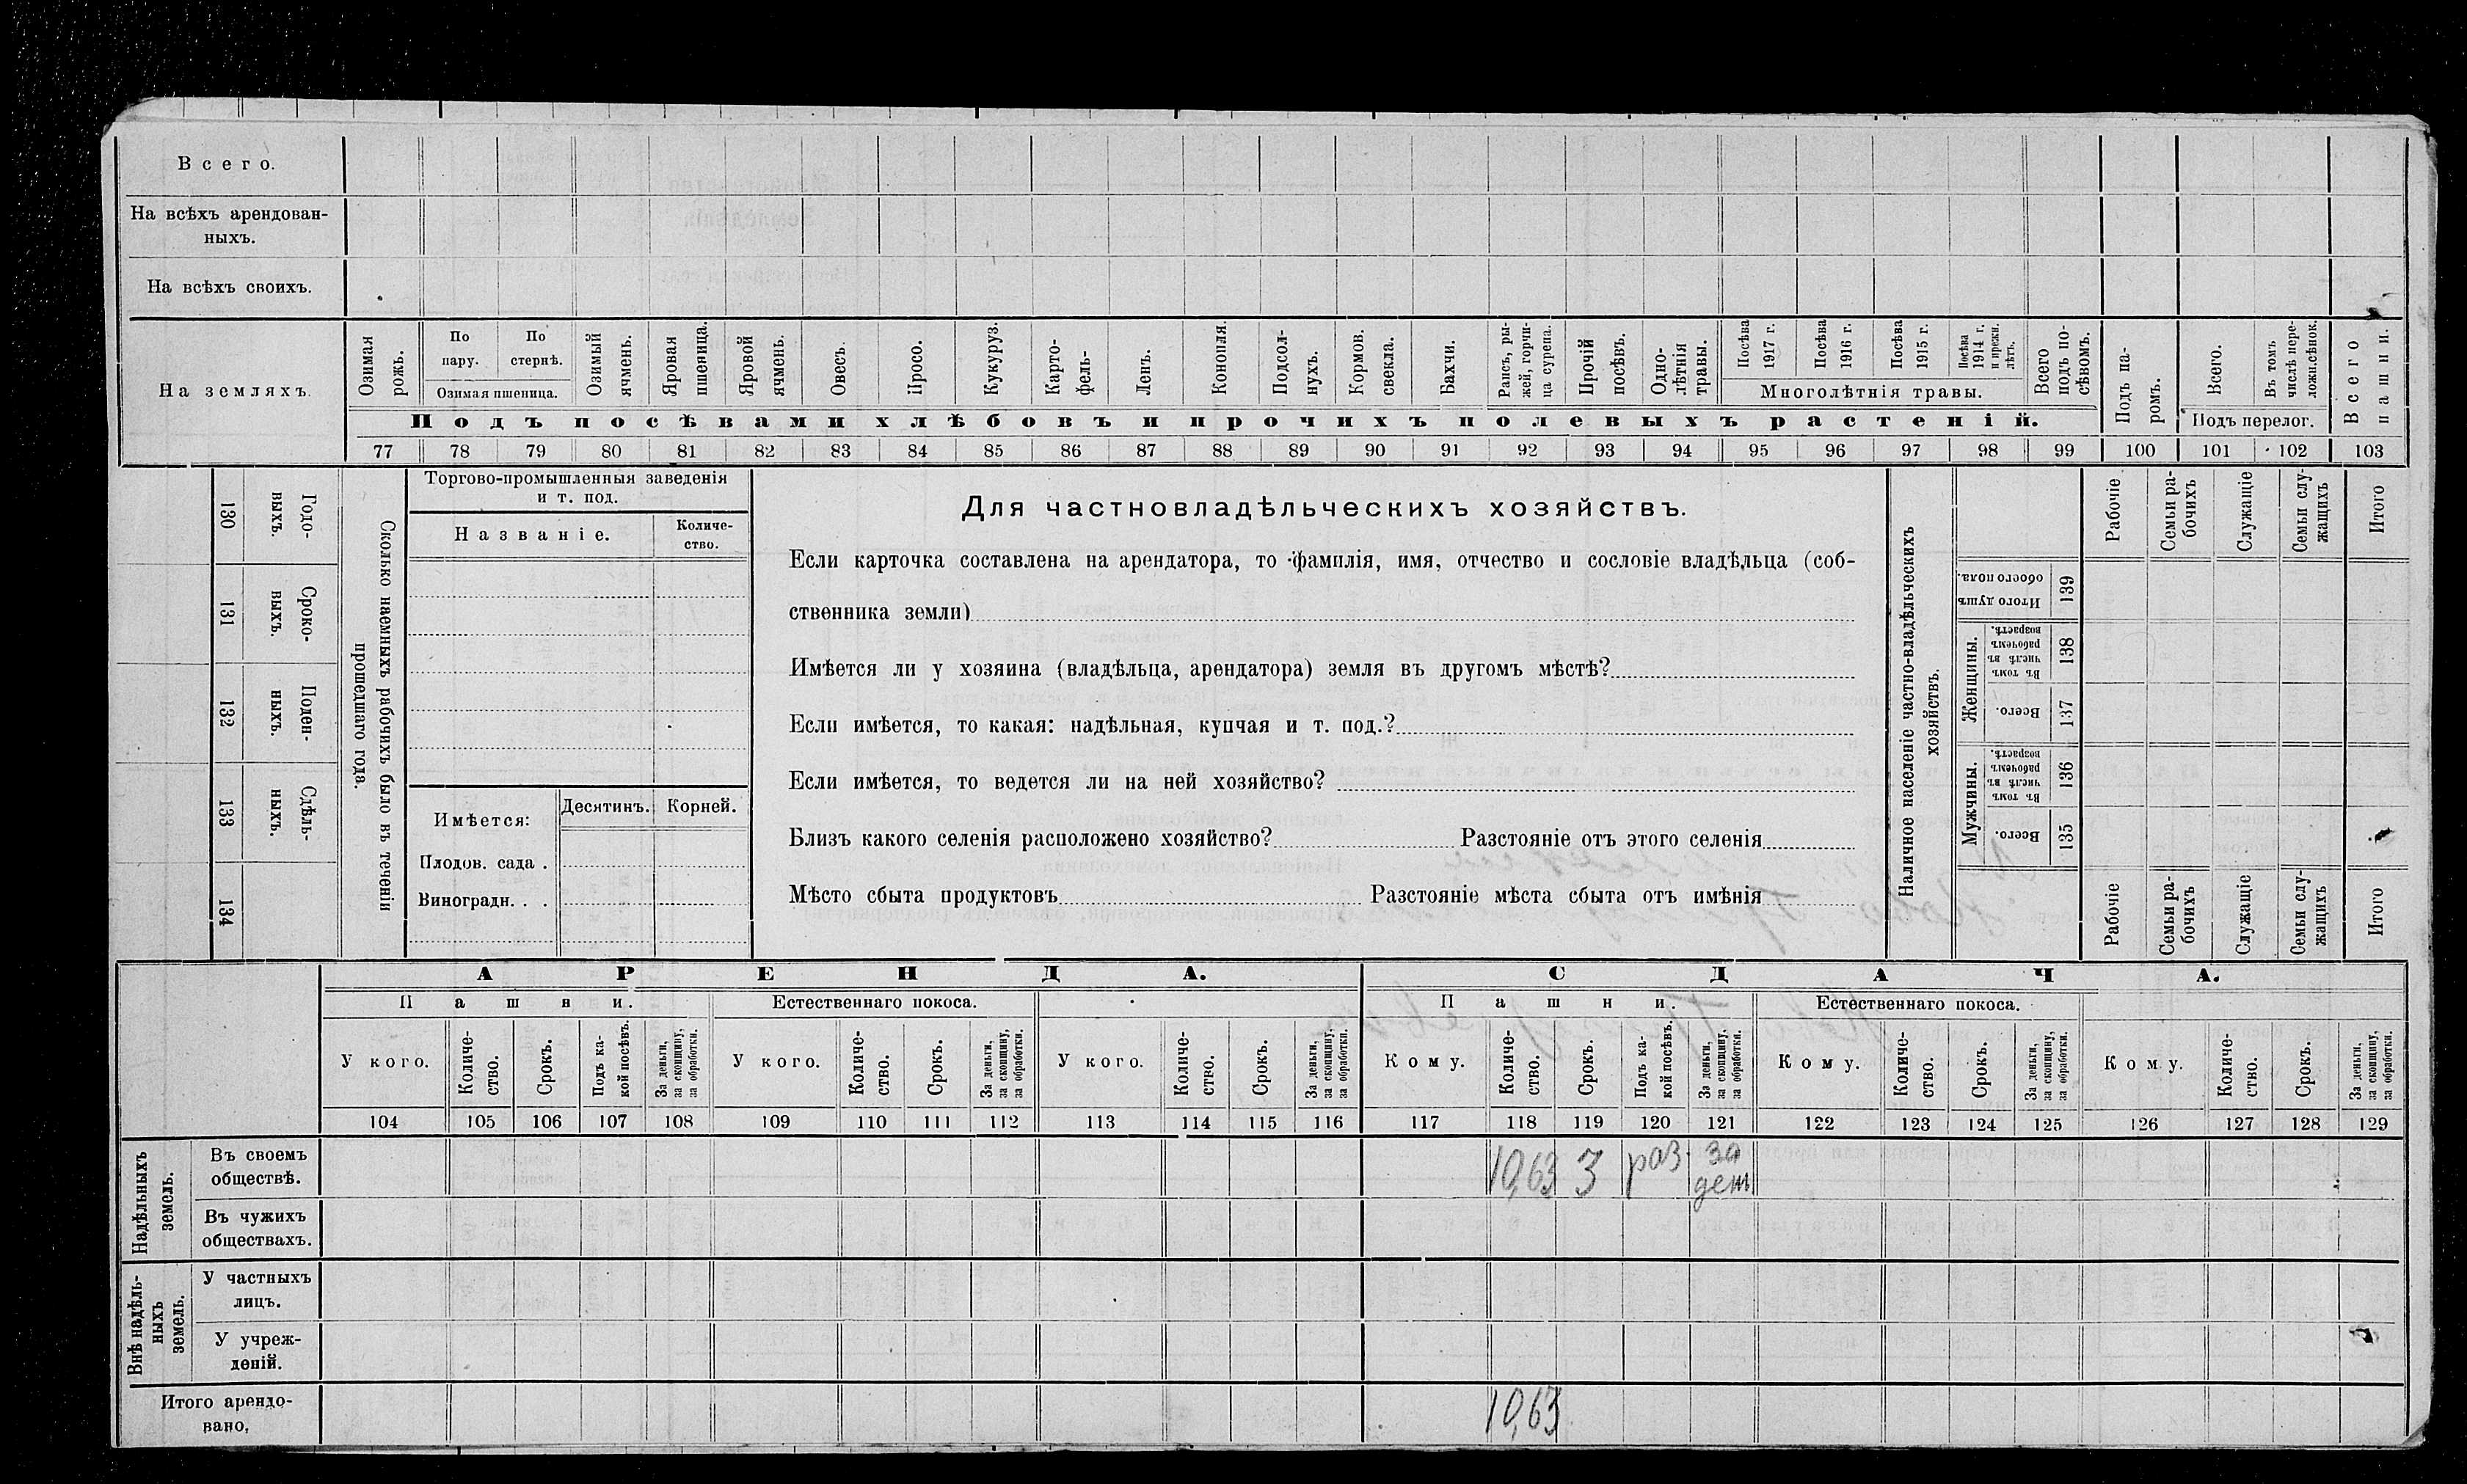 Всего.
На всѣхъ арендован-
ныхъ.
На всѣхъ своихъ.
На земляхъ.
Озимая рожь.
По пару.
По стернѣ.
Озимая пшеница.
Озимый ячмень.
Яровая пшеница.
Яровой ячмень.
Овесъ.
Просо.
Кукуруз.
Карто-
фель-
Ленъ.
Конопля.
Подсол-
нухъ.
Кормов. свекла.
Бахчи.
Рапсъ, ры-
жей, горчи-
ца сурепа.
Прочій посѣвъ.
Одно-
лѣтнія травы.
Посѣва 1917 г.
Посѣва 1916 г.
Посѣва 1915 г.
Посѣва 1914 г. и прежн. лѣтъ.
Многолѣтнія травы.
Всего подъ по-
сѣвомъ.
Подъ па-
ромъ.
Всего.
Въ томъ числѣ пере-
ложн. сѣнок.
Подъ перелог.
Всего пашни.
Подъ посѣвами хлѣбовъ и прочихъ полевыхъ растеній.
77 78 79 80 81 82 83 84 85 86 87 88 89 90 91 92 93 94 95 96 97 98 99 100 101 102 103
130 Годо-
выхъ.
131 Сроко-
выхъ.
132 Поден-
ныхъ.
133 Сдѣль-
ныхъ.
134
Сколько наемныхъ рабочихъ было въ теченіи
прошедшаго года.
Торгово-промышленныя заведенія
и т. под.
Названіе.
Количе-
ство.
Имѣется:
Десятинъ.
Корней.
Плодов. сада .
Виноградн. . .
Для частновладѣльческихъ хозяйствъ.
Если карточка составлена на арендатора, то фамилія, имя, отчество и сословіе владѣльца (соб-
ственника земли)
Имѣется ли у хозяина (владѣльца, арендатора) земля въ другомъ мѣстѣ?
Если имѣется, то какая: надѣльная, купчая и т. под.?
Если имѣется, то ведется ли на ней хозяйство?
Близъ какого селенія расположено хозяйство? Разстояніе отъ этого селенія
Мѣсто сбыта продуктовъ Разстояніе мѣста сбыта отъ имѣнія
Наличное населеніе частно-владѣльческихъ
хозяйствъ.
Рабочіе
Семьи ра-
бочихъ
Служащіе
Семьи слу-
жащихъ
Итого
Итого душъ обоего пола.
139
Женщины.
Въ томъ числѣ въ рабочемъ возрастѣ.
138
Всего.
137
Мужчины.
Въ томъ числѣ въ рабочемъ возрастѣ.
136
Всего.
135
Рабочіе
Семьи ра-
бочихъ
Служащіе
Семьи слу-
жащихъ
Итого
АРЕНДА.
СДАЧА.
Пашни.
Естественнаго покоса.
Пашни.
Естественнаго покоса.
У кого.
Количе-
ство.
Срокъ.
Подъ ка-
кой посѣвъ.
За деньги, за скопщину, за обработки.
У кого.
Количе-
ство.
Срокъ.
За деньги, за скопщину, за обработки.
У кого.
Количе-
ство.
Срокъ.
За деньги, за скопщину, за обработки.
Кому.
Количе-
ство.
Срокъ.
Подъ ка-
кой посѣвъ.
За деньги, за скопщину, за обработки.
Кому.
Количе-
ство.
Срокъ.
За деньги, за скопщину, за обработки.
Кому.
Количе-
ство.
Срокъ.
За деньги, за скопщину, за обработки.
104 105 106 107 108 109 110 111 112 113 114 115 116 117 118 119 120 121 122 123 124 125 126 127 128 129
Надѣльныхъ земель.
Въ своемъ
обществѣ.
10,63 3 раз. за
ден
Въ чужихъ
обществахъ.
Внѣ надѣль-
ныхъ земель.
У частныхъ
лицъ.
У учреж-
деній.
Итого арендо-
вано,
10,63